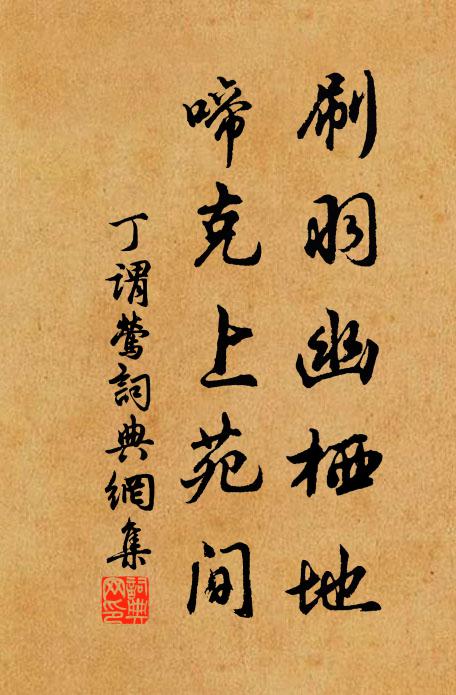 刷羽幽栖地
啼克上苑间
丁謂鶯詞典網集
詞典网印